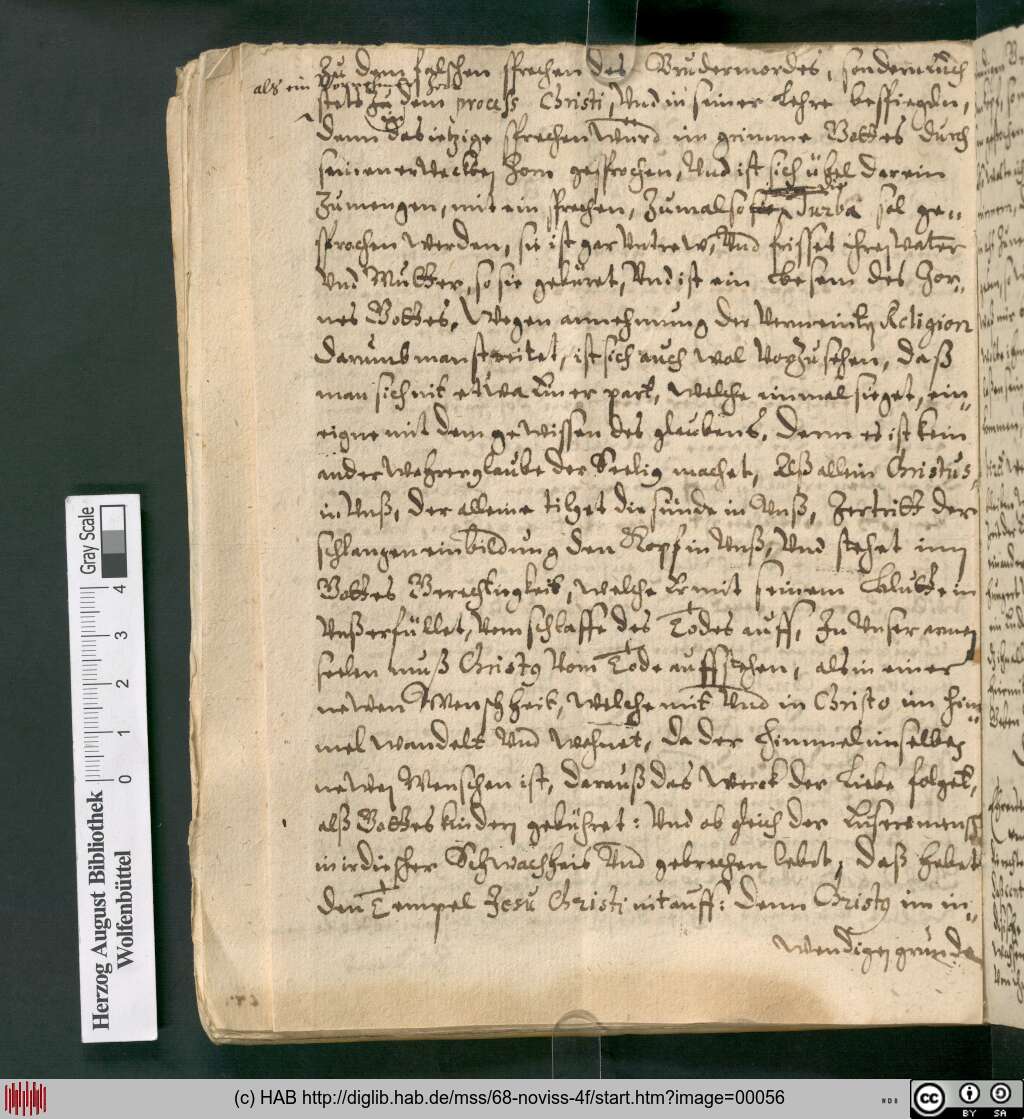 Zu dem falschen sprechen des Brudermordes, sondern auch
als ein
stets zu dem process Christi, Vnd in seiner Lehre
dann das ietzige sprechen wurd im grimme Gottes durch
seinen erweckten Zorn gesprochen, Vnd ist sich übel darein
Zumengen, mit ein sprechen, Zumal so die Turba sol ge=
sprochen werden, sie ist gar vntrew, Vnd frisset ihren Vater
Vnd Mutter, so sie gebüret, Vnd ist ein besem des Zor=
nes Gottes. Wegen annehmung der vermeinten Religion
darumb man streitet, ist sich auch wol vorzusehen, daß
man sich nit etwa einer part, welche einmal sieget, ein=
eigne mit dem gewissen des glaubens. Denn es ist kein
ander wahrer glaube der Seelig machet, Alß allein Christus
in Vnß, der alleine tilget die sünde in Vnß, Zertritt der
schlangen einbildung den Kopf in Vnß, Vnd stehet inn
Gottes Gerechtigkeit, welche Er mit seinem Blutte in
Vnß erfüllet, vom schlaffe des Todes auff, In Vnser armen
seelen muß Christus Vom Tode auffstehen, als in einer
newen Menschheit, welche mit Vnd in Christo im him=
mel wandelt Vnd wohnet, da der himmel im selben
newen Menschen ist, darauß das werck der Liebe folget,
alß Gottes kindern gebühret: Vnd ob gleich der eusere mensch
in irdischer Schwachheit Vnd gebrechen lebet, daß hebet
den Tempel Jesu Christi nit auff: Denn Christus im in=
wendigen grunde
Herzog August Bibliothek
Wolfenbüttel
Gray Scale
0 1 2 3 4
(c) HAB http://diglib.hab.de/mss/68-noviss-4f/start.htm?image=00056
cc BY SA